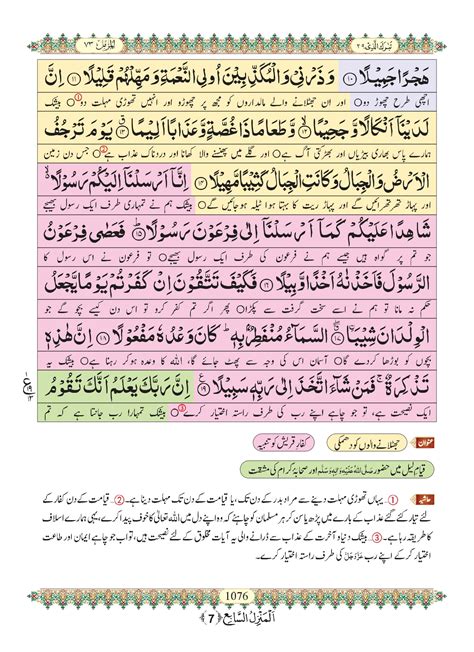 تَبٰرَكَ الَّذِیْ ۲۹
اَلْمُزَّمِّل ۷۳
هَجْرًا جَمِیْلًا ﴿۱۰﴾ وَ ذَرْنِیْ وَ الْمُكَذِّبِیْنَ اُولِی النَّعْمَةِ وَ مَهِّلْهُمْ قَلِیْلًا ﴿۱۱﴾ اِنَّ
اچھی طرح چھوڑ دو ○ اور ان جھٹلانے والے مالداروں کو مجھ پر چھوڑو اور انہیں تھوڑی مہلت دو ○① بیشک
لَدَیْنَاۤ اَنْكَالًا وَّ جَحِیْمًا ﴿۱۲﴾ وَّ طَعَامًا ذَا غُصَّةٍ وَّ عَذَابًا اَلِیْمًا ﴿۱۳﴾ یَوْمَ تَرْجُفُ
ہمارے پاس بھاری بیڑیاں اور بھڑکتی آگ ہے ○ اور گلے میں پھنسنے والا کھانا اور دردناک عذاب ہے ○② جس دن زمین
الْاَرْضُ وَ الْجِبَالُ وَ كَانَتِ الْجِبَالُ كَثِیْبًا مَّهِیْلًا ﴿۱۴﴾ اِنَّاۤ اَرْسَلْنَاۤ اِلَیْكُمْ رَسُوْلًا ﴿ۙ۬﴾
اور پہاڑ تھرتھرائیں گے اور پہاڑ ریت کا بہتا ہوا ٹیلہ ہوجائیں گے ○ بیشک ہم نے تمہاری طرف ایک رسول بھیجے
شَاهِدًا عَلَیْكُمْ كَمَاۤ اَرْسَلْنَاۤ اِلٰى فِرْعَوْنَ رَسُوْلًا ﴿۱۵﴾ فَعَصٰى فِرْعَوْنُ
جو تم پر گواہ ہیں جیسے ہم نے فرعون کی طرف ایک رسول بھیجے ○ تو فرعون نے اس رسول کا
الرَّسُوْلَ فَاَخَذْنٰهُ اَخْذًا وَّبِیْلًا ﴿۱۶﴾ فَكَیْفَ تَتَّقُوْنَ اِنْ كَفَرْتُمْ یَوْمًا یَّجْعَلُ
حکم نہ مانا تو ہم نے اسے سخت گرفت سے پکڑا ○ پھر اگر تم کفر کرو تو اس دن کیسے بچو گے جو
الْوِلْدَانَ شِیْبًا ﴿۱۷﴾ السَّمَآءُ مُنْفَطِرٌۢ بِهٖ ؕ كَانَ وَعْدُهٗ مَفْعُوْلًا ﴿۱۸﴾ اِنَّ هٰذِهٖ
بچوں کو بوڑھا کردے گا ○ آسمان اس کے سبب سے پھٹ جائے گا، اللہ کا وعدہ ہوکر رہنا ہے ○ بیشک یہ
تَذْكِرَةٌ ۚ فَمَنْ شَآءَ اتَّخَذَ اِلٰى رَبِّهٖ سَبِیْلًا ﴿۱۹﴾ اِنَّ رَبَّكَ یَعْلَمُ اَنَّكَ تَقُوْمُ
ایک نصیحت ہے، تو جو چاہے اپنے رب کی طرف راستہ اختیار کرے ○③ بیشک تمہارا رب جانتا ہے کہ تم
عنوان جھٹلانے والوں کو دھمکی کفارِ قریش کو تنبیہ
قیامِ لیل میں حضور صَلَّی اللہُ عَلَیْہِ وَاٰلِہٖ وَسَلَّم اور صحابۂ کرام کی مشقت
حاشیہ ①۔ یہاں تھوڑی مہلت دینے سے مراد بدر کے دن تک، یا قیامت کے دن تک مہلت دینا ہے۔ ②۔ قیامت کے دن کفار کے
لئے تیار کئے گئے عذاب کے بارے میں پڑھ یا سن کر ہر مسلمان کو چاہئے کہ وہ اپنے دل میں اللہ تعالیٰ کا خوف پیدا کرے، یہی ہمارے اسلاف
کا طریقہ رہا ہے۔ ③۔ بیشک دنیا و آخرت کے عذاب سے ڈرانے والی یہ آیات مخلوق کے لئے نصیحت ہیں، تو اب جو چاہے ایمان اور طاعت
اختیار کر کے اپنے رب عَزَّوَجَلَّ کی طرف راستہ اختیار کرے۔
1076
اَلْمَنْزِلُ السَّابِع ﴿7﴾